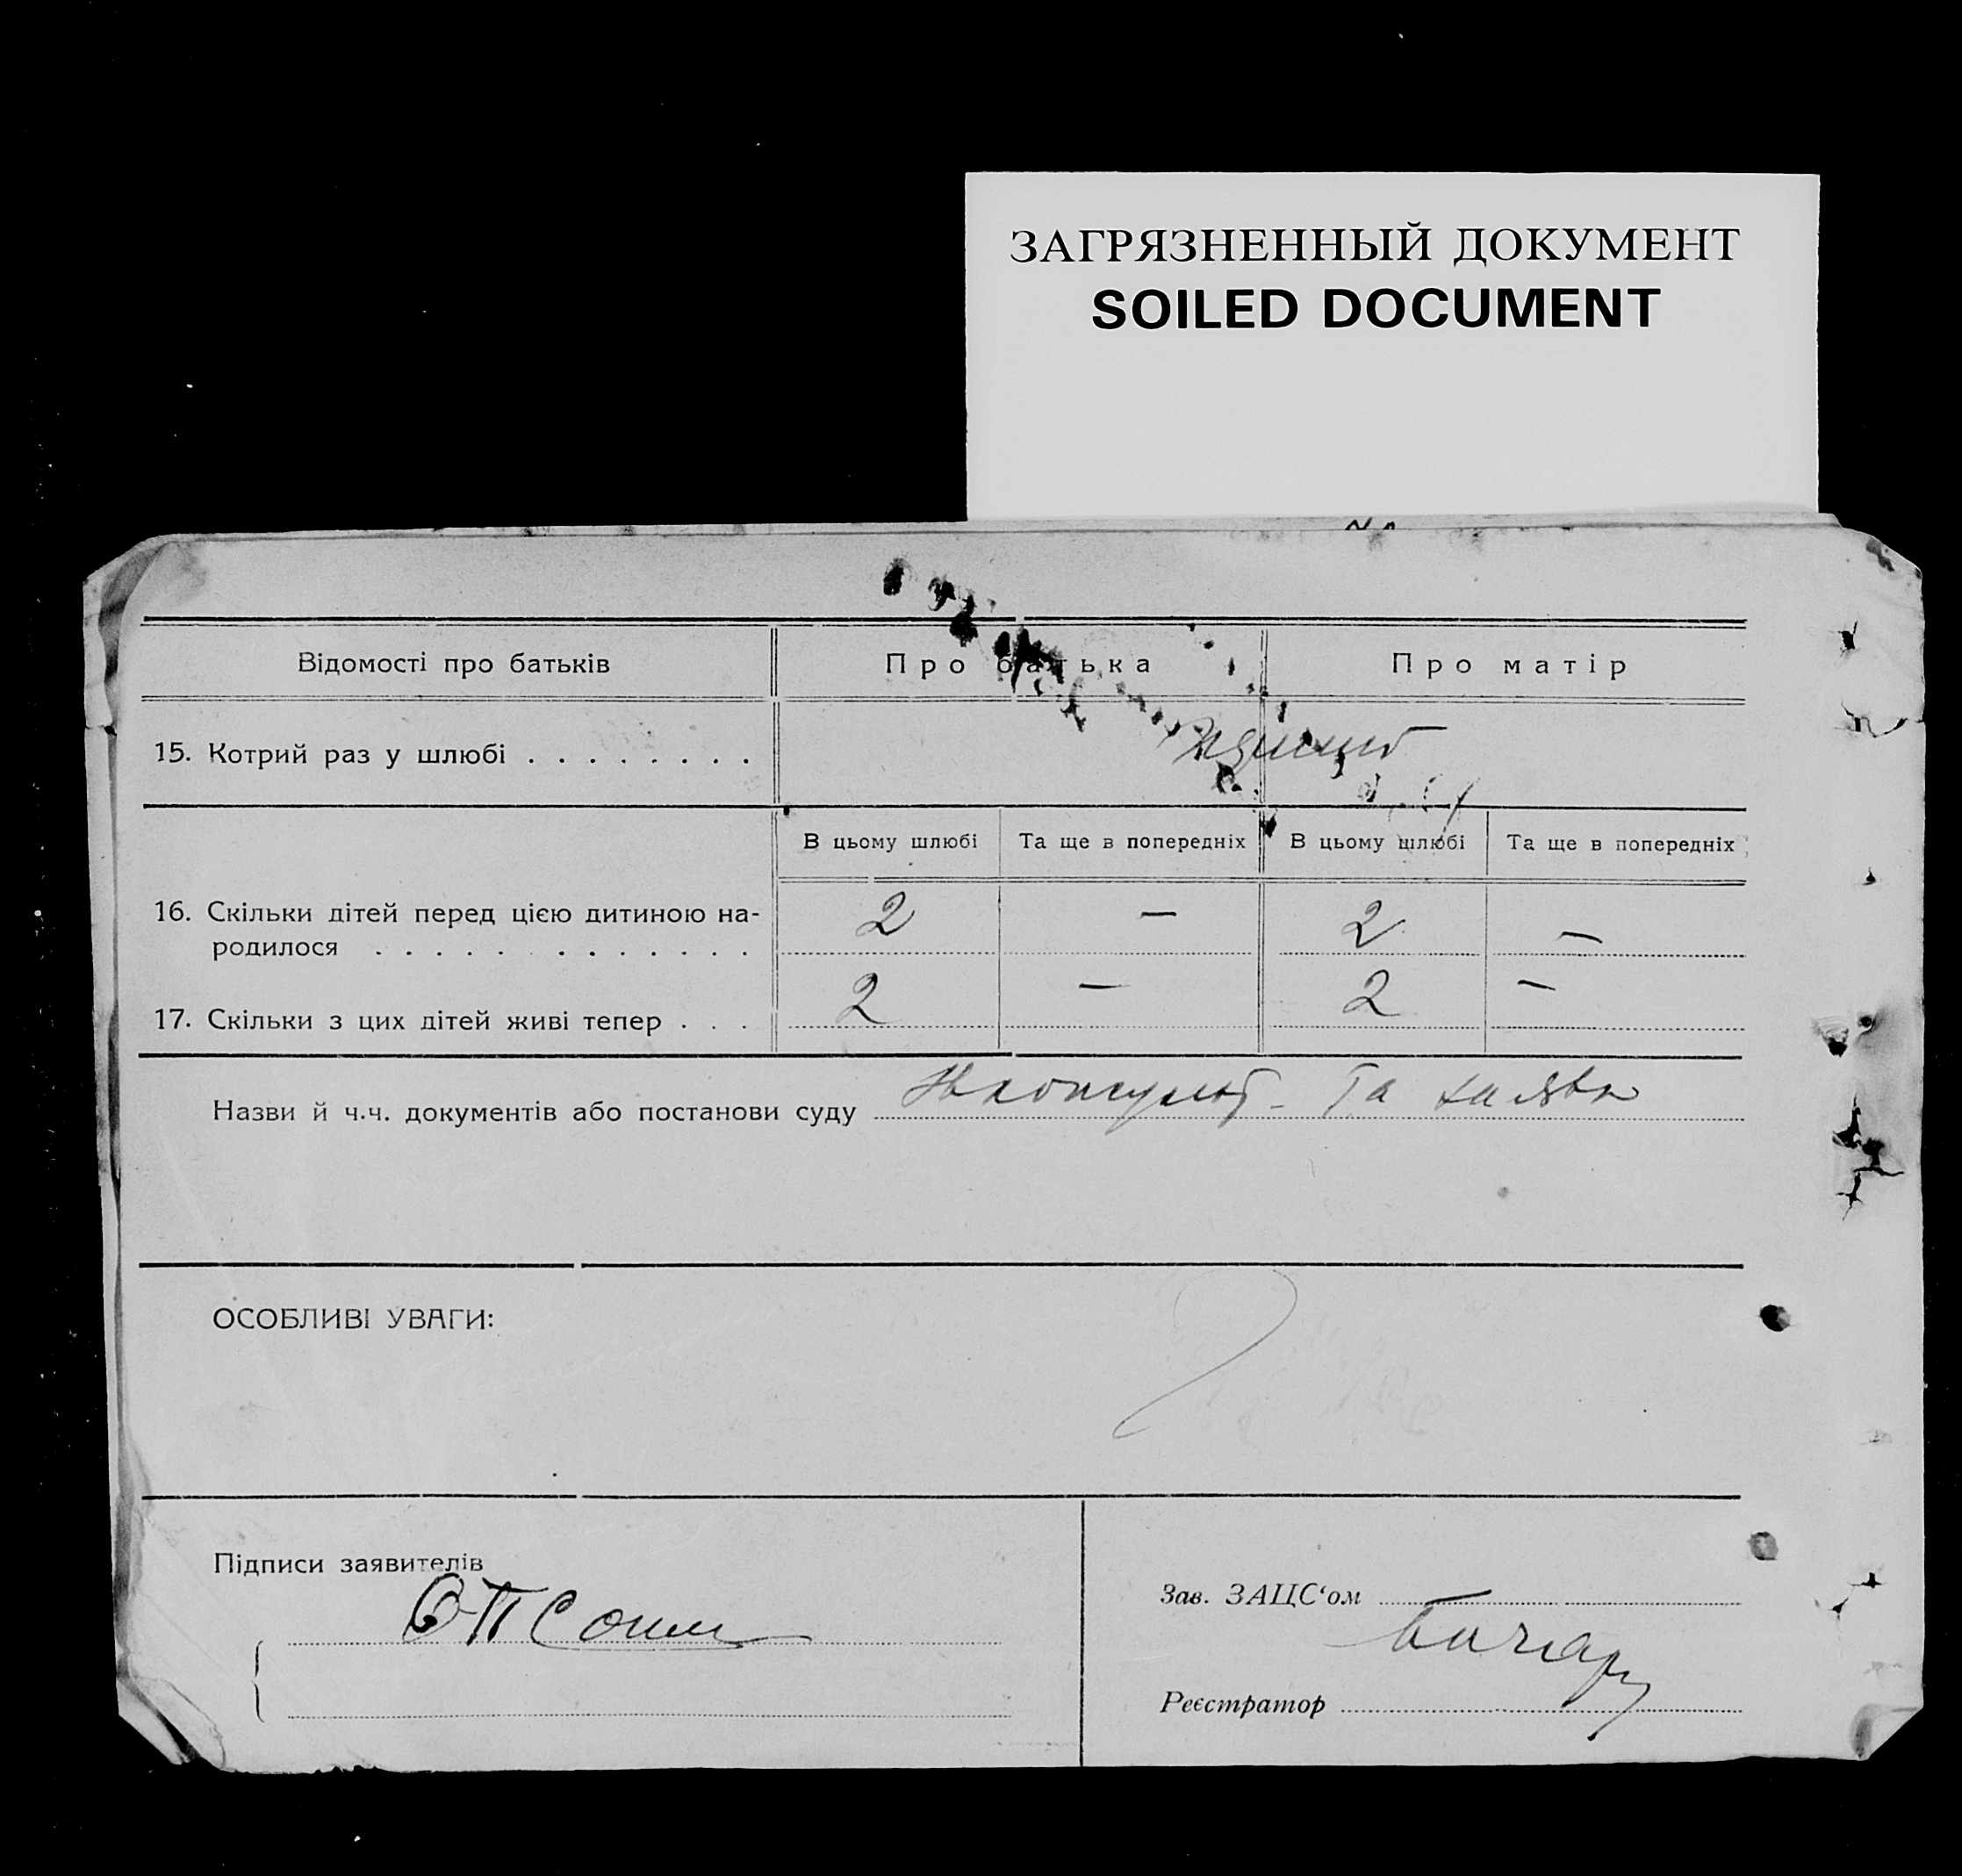 ЗАГРЯЗНЕННЫЙ ДОКУМЕНТ
SOILED DOCUMENT
Відомості про батьків Про батька Про матір
15. Котрий раз у шлюбі . . . . . . . .
В цьому шлюбі Та ще в попередніх В цьому шлюбі Та ще в попередніх
16. Скільки дітей перед цією дитиною на- 2 — 2 —
родилося . . . . . . . . . . . . .
17. Скільки з цих дітей живі тепер . . . 2 — 2 —
Назви й ч.ч. документів або постанови суду Та
ОСОБЛИВІ УВАГИ:
Підписи заявителів
Зав. ЗАЦС‘ом
Реєстратор